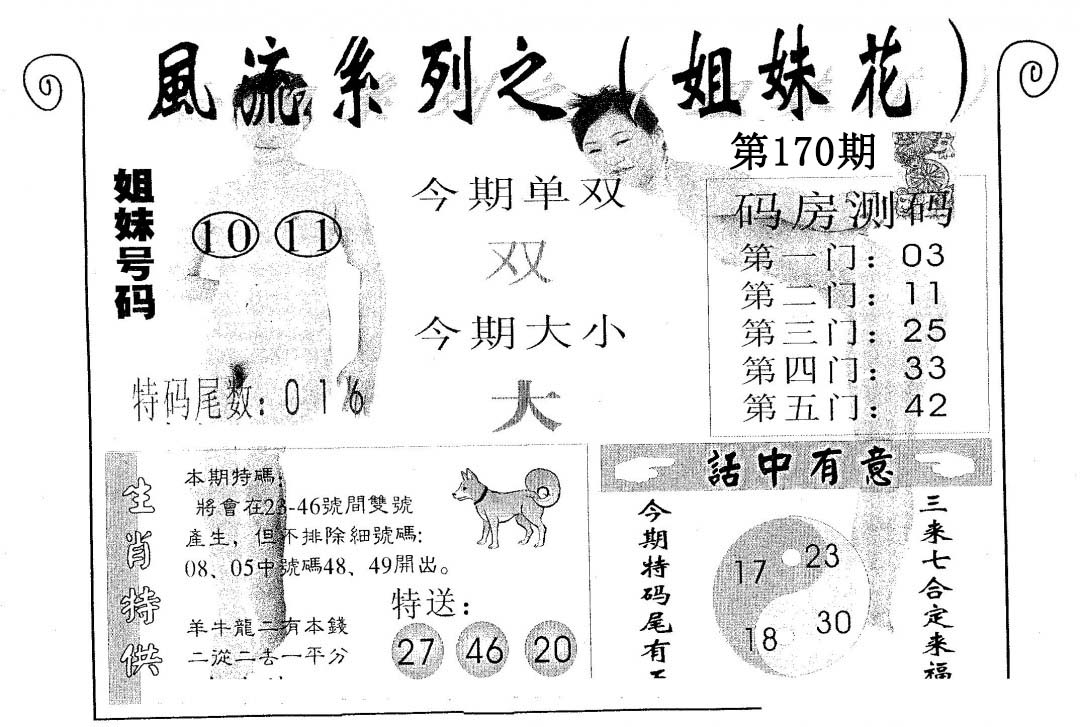 風流系列之（姐妹花）
第170期
姐妹号码
10 11
今期单双
双
今期大小
大
特码尾数：0 1 6
码房测码
第一门：03
第二门：11
第三门：25
第四门：33
第五门：42
生肖特供
本期特碼：
將會在23-46號間雙號
產生，但不排除細號碼：
08、05中號碼48、49開出。
羊牛龍二有本錢
二從二去一平分
特送：
27 46 20
話中有意
今期特码尾有
17 23
18 30
三来七合定来福